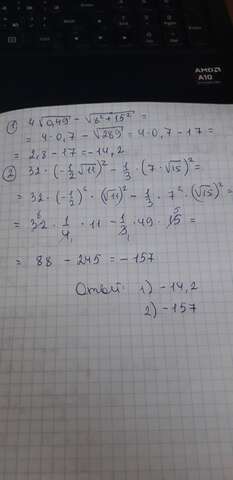 AMD
A10
① 4√0,49 - √(8² + 15²) =
= 4 · 0,7 - √289 = 4 · 0,7 - 17 =
= 2,8 - 17 = -14,2
② 32 · (-1/2 √11)² - 1/3 · (7 · √15)² =
= 32 · (-1/2)² · (√11)² - 1/3 · 7² · (√15)² =
= 32 · 1/4 · 11 - 1/3 · 49 · 15 =
= 88 - 245 = -157
Ответ: 1) -14,2
2) -157